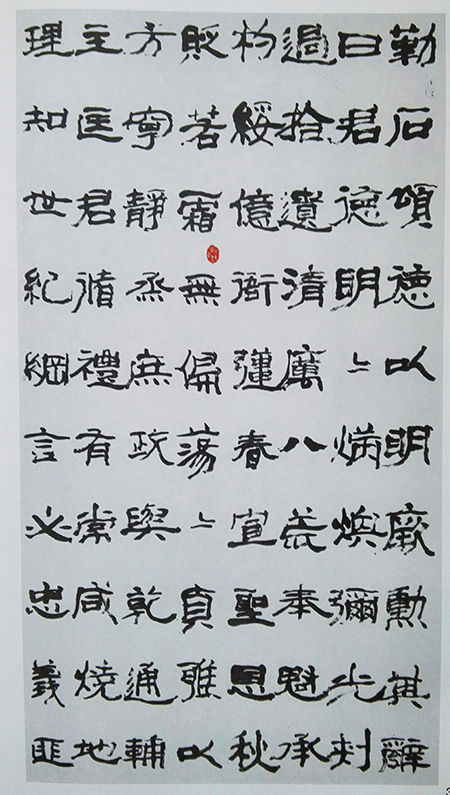 勒石頌德以明厥勳其辭
曰君德明〻炳煥彌光刺
過拾遺清厲八荒奉魁承
杓綏億衙彊春宣聖恩秋
貶若霜無偏蕩〻貞雅以
方寧靜烝庶政與乾通輔
主匡君循禮有常咸燒地
理知世紀綱言必忠義匪